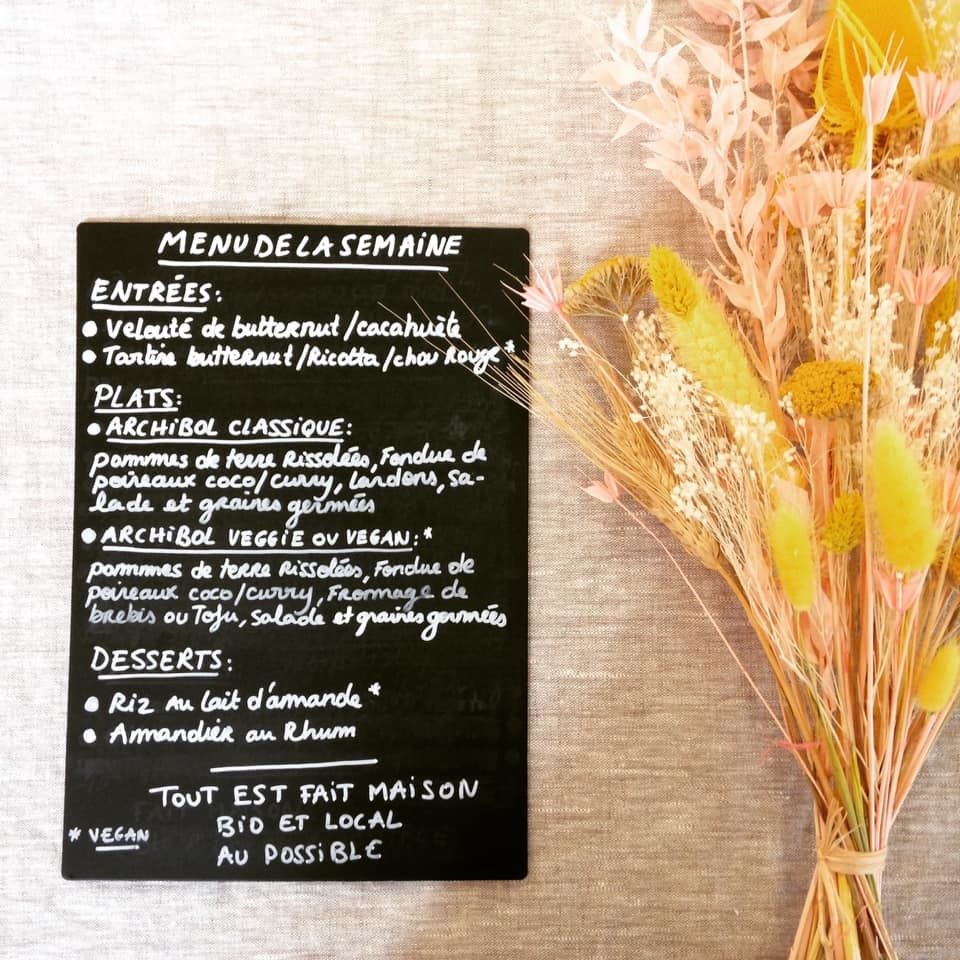 MENU DE LA SEMAINE
ENTRÉES:
• Velouté de butternut/cacahuète
• Tartine butternut/Ricotta/chou Rouge*
PLATS:
• ARCHIBOL CLASSIQUE:
pommes de terre Rissolées, Fondue de
poireaux coco/curry, Lardons, Sa-
lade et graines germées
• ARCHIBOL VEGGIE OU VEGAN:*
pommes de terre Rissolées, Fondue de
poireaux coco/curry, Fromage de
brebis ou Tofu, Salade et graines germées
DESSERTS:
• Riz au lait d'amande*
• Amandier au Rhum
TOUT EST FAIT MAISON
BIO ET LOCAL
AU POSSIBLE
* VEGAN